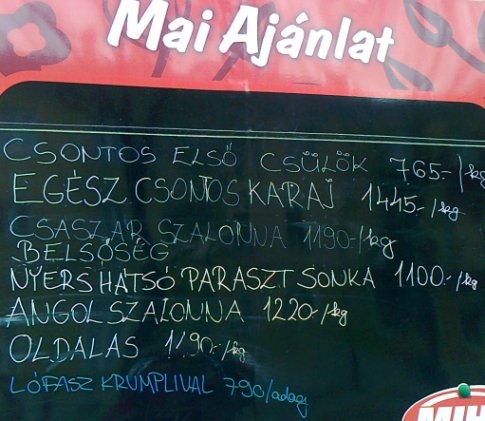 Mai Ajánlat
CSONTOS ELSŐ CSÜLÖK 765.-/kg
EGÉSZ CSONTOS KARAJ 1445.-/kg
CSASZAR SZALONNA 1190-/kg
BELSŐSÉG
NYERS HATSÓ PARASZT SONKA 1100.-/kg
ANGOL SZALONNA 1220.-/kg
OLDALAS 1190.-/kg
LÓFASZ KRUMPLIVAL 790/adag